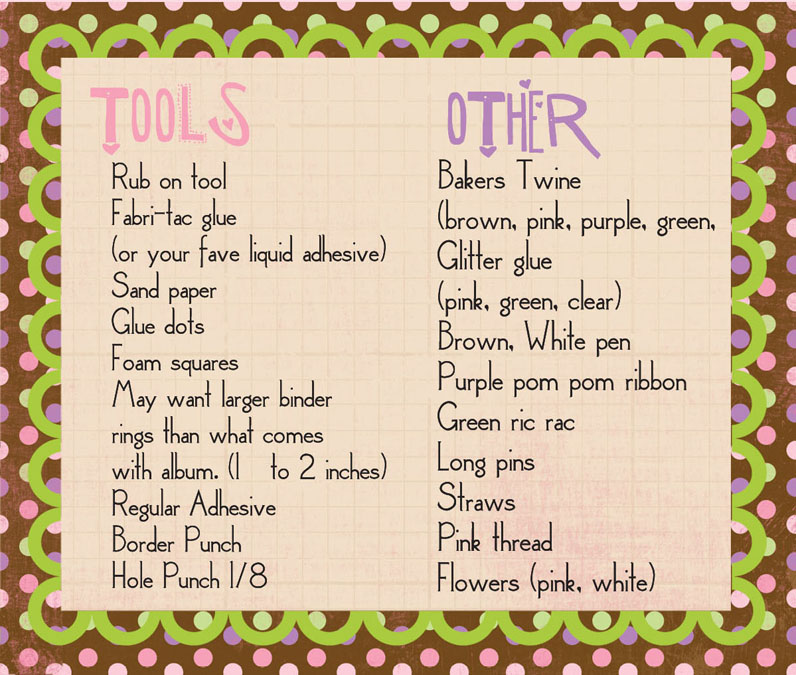 TOOLS
Rub on tool
Fabri-tac glue
(or your fave liquid adhesive)
Sand paper
Glue dots
Foam squares
May want larger binder
rings than what comes
with album. (1 to 2 inches)
Regular Adhesive
Border Punch
Hole Punch 1/8
OTHER
Bakers Twine
(brown, pink, purple, green,
Glitter glue
(pink, green, clear)
Brown, White pen
Purple pom pom ribbon
Green ric rac
Long pins
Straws
Pink thread
Flowers (pink, white)